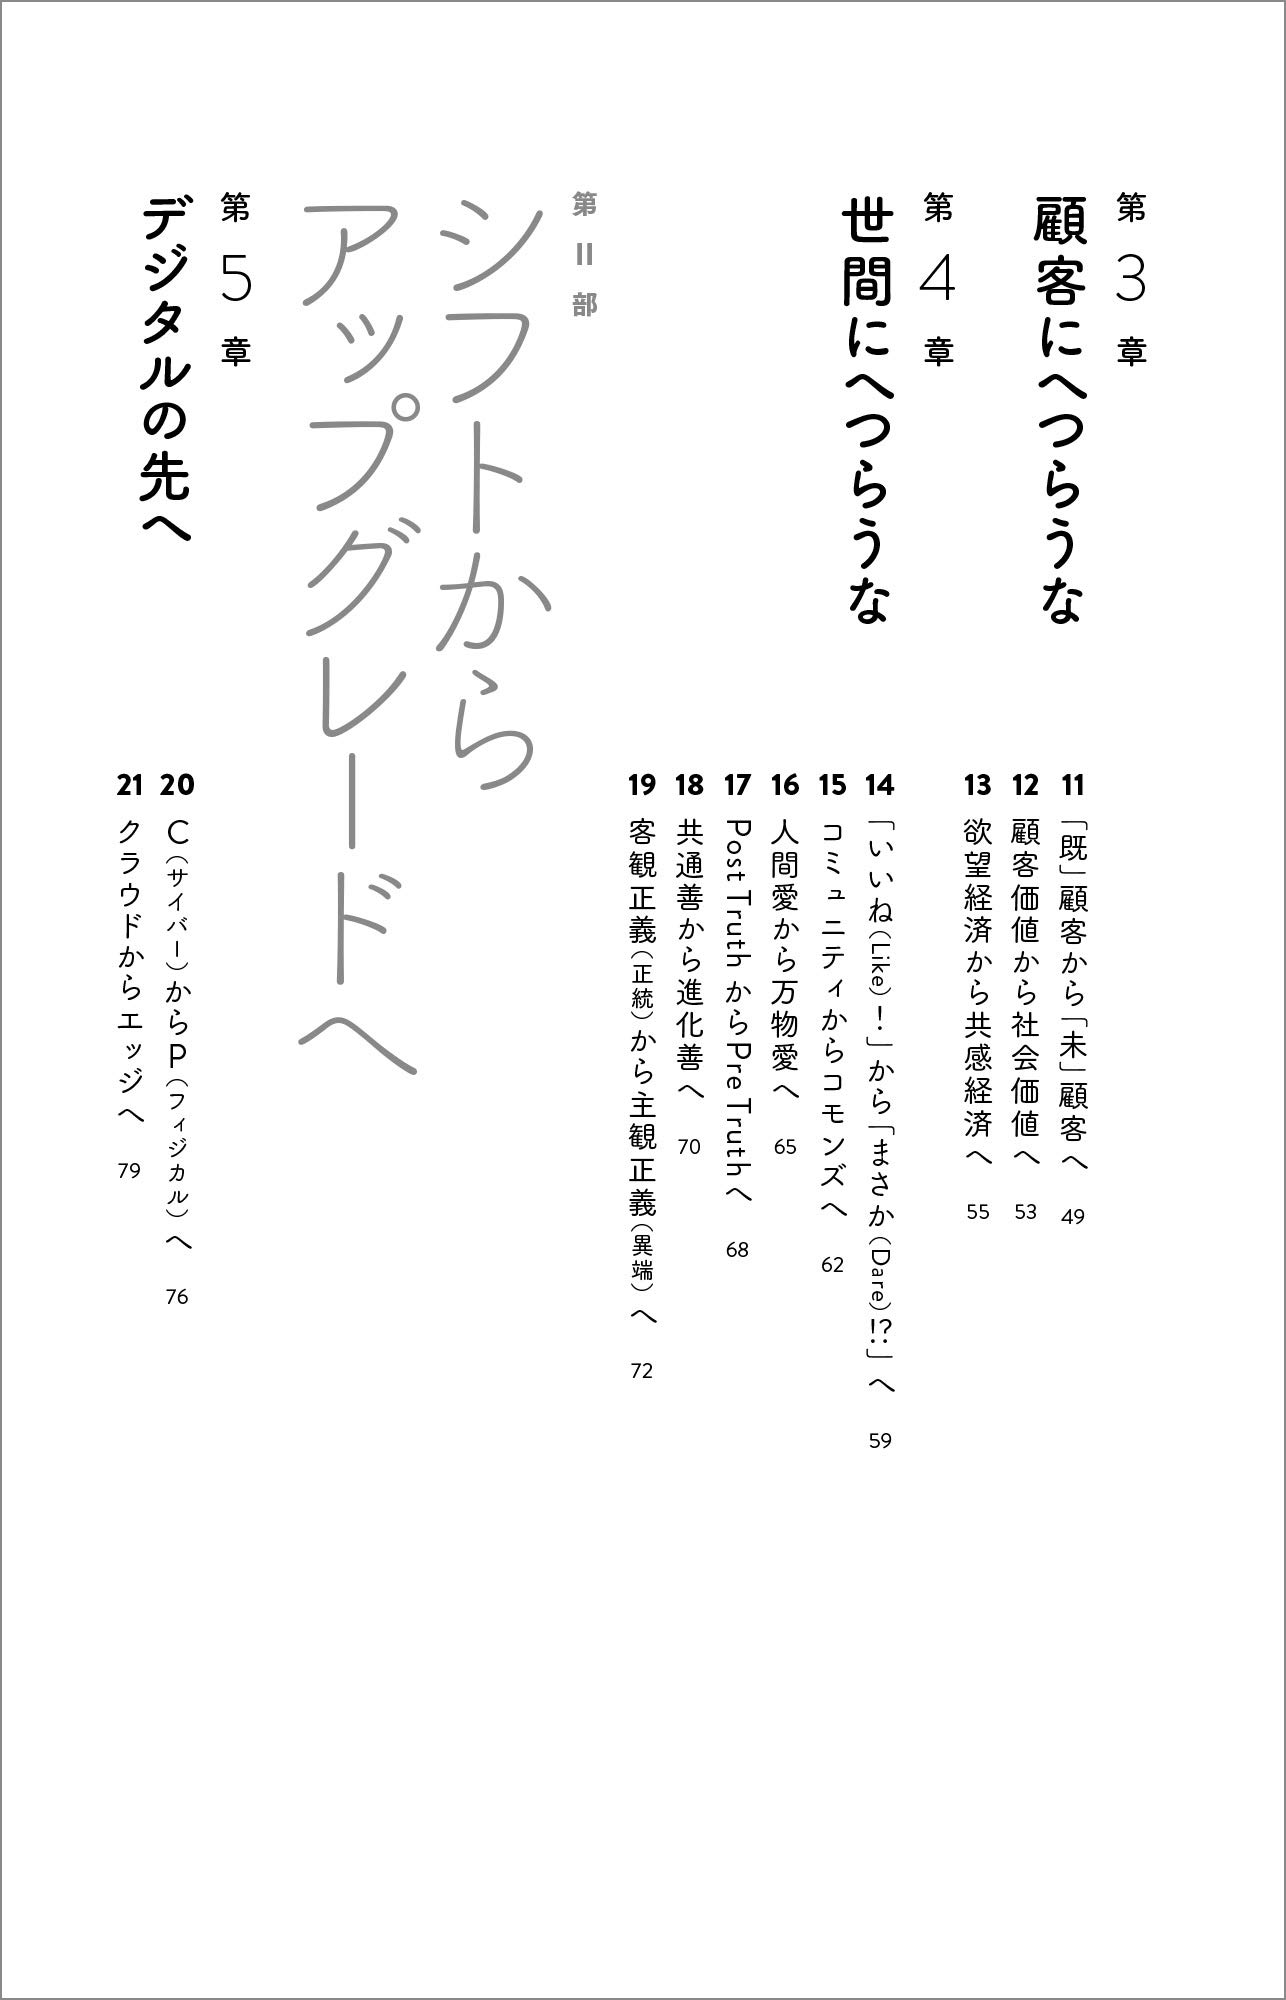 第3章
顧客にへつらうな
11 「既」顧客から「未」顧客へ 49
12 顧客価値から社会価値へ 53
13 欲望経済から共感経済へ 55
第4章
世間にへつらうな
14 「いいね(Like)！」から「まさか(Dare)!?」へ 59
15 コミュニティからコモンズへ 62
16 人間愛から万物愛へ 65
17 Post Truth からPre Truthへ 68
18 共通善から進化善へ 70
19 客観正義(正統)から主観正義(異端)へ 72
第II部
シフトから
アップグレードへ
第5章
デジタルの先へ
20 C(サイバー)からP(フィジカル)へ 76
21 クラウドからエッジへ 79